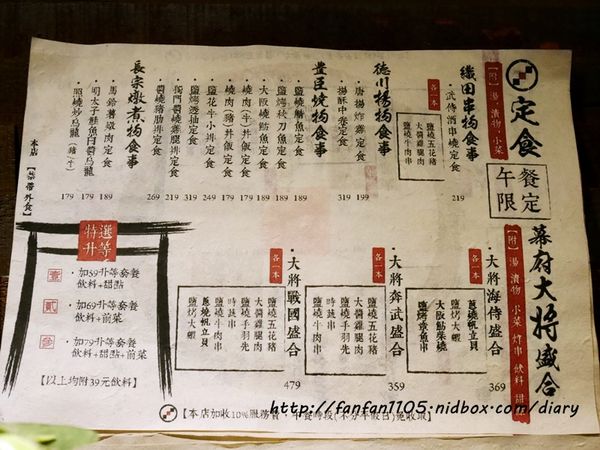 定食
【附】湯、漬物、小菜
午餐限定
織田串物食事
・武侍酒串燒定食
219
各一本
鹽燒五花豬
大醬雞腿肉
鹽燒牛肉串
德川揚物食事
・唐揚炸雞定食
199
・揚酥中卷定食
319
豐臣燒物食事
・鹽燒鯖魚定食
189
・鹽烤秋刀魚定食
189
・大阪燒鯖魚定食
189
・燒肉(牛)丼飯定食
・燒肉(豬)丼飯定食
・鹽花牛小排定食
249
・鹽烤透抽定食
319
・獨門醬燒雞腿排定食
219
・醬燒豬肋排定食
269
長宗燉煮物食事
・馬鈴薯燉肉定食
179
・明太子鮭魚白醬烏龍
179
・照燒炒烏龍(豬/牛)
179
本店【禁帶外食】
幕府大將盛合
【附】湯 漬物 小菜 炸串 飲料 甜點
・大將海侍盛合
369
各一本
蔥燒帆立貝
鹽烤大蝦
大阪鯖柴燒
鹽烤章魚串
・大將奔武盛合
359
各一本
鹽燒五花豬
大醬雞腿肉
鹽燒手羽先
時蔬串
鹽燒牛肉串
・大將戰國盛合
479
各一本
鹽燒五花豬
大醬雞腿肉
鹽燒手羽先
時蔬串
鹽燒牛肉串
蔥燒帆立貝
鹽烤大蝦
特選升等
壹・加59升等套餐
飲料+甜點
貳・加69升等套餐
飲料+前菜
參・加79升等套餐
飲料+甜點+前菜
【以上均附39元飲料】
【本店加收10%服務費，午餐時段(不分平假日)免收取】
http://fanfan1105.nidbox.com/diary